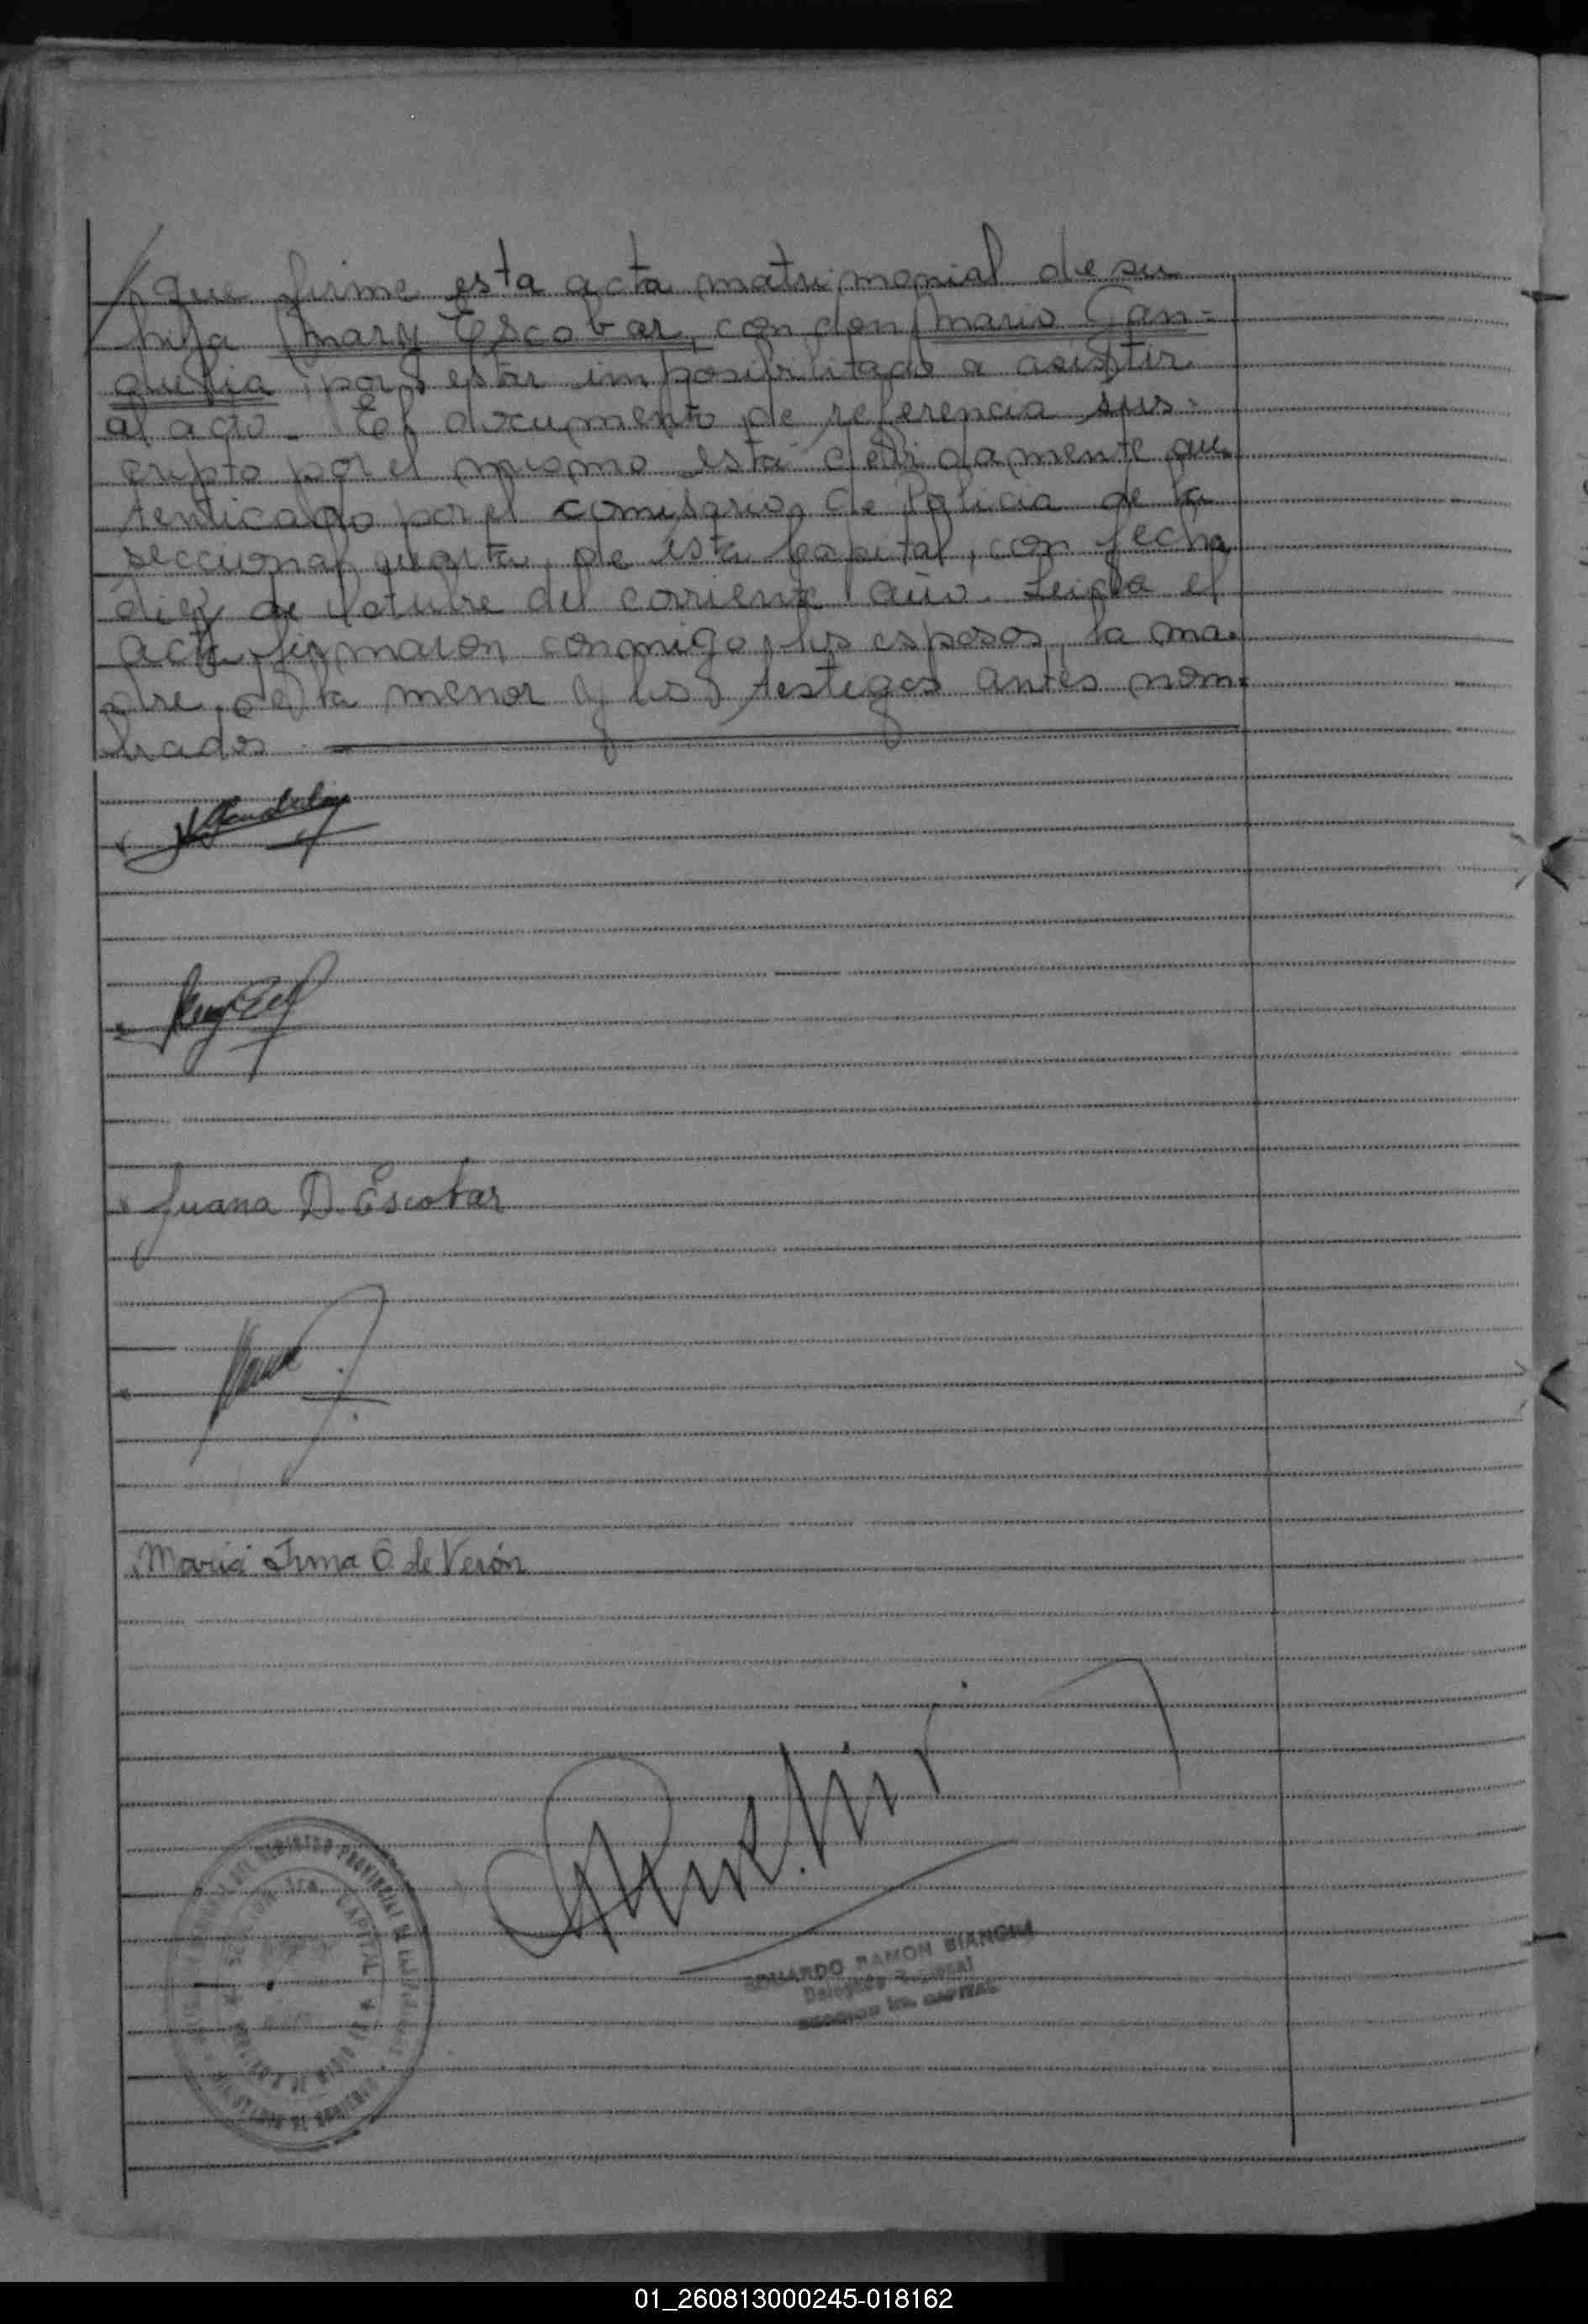 que firme esta acta matrimonial de su
hija Mary Escobar, con don Mario Gan=
gulfia por estar imposibilitado a asistir
al acto. El documento de referencia sus=
cripto por el mismo está debidamente au
tenticado por el comisario de Policia de la
seccional cuarta, de ésta Capital, con fecha
diez de Octubre del corriente año. Leida el
acta, firmaron conmigo, los esposos, la ma=
dre de la menor y los testigos antes nom=
brados.
Juana D. Escobar
Maria Irma O de Verón
EDUARDO RAMON BIANCHI
SECCION 1ra. CAPITAL
REGISTRO PROVINCIAL DE
SECCION 1ra. CAPITAL
01_260813000245-018162